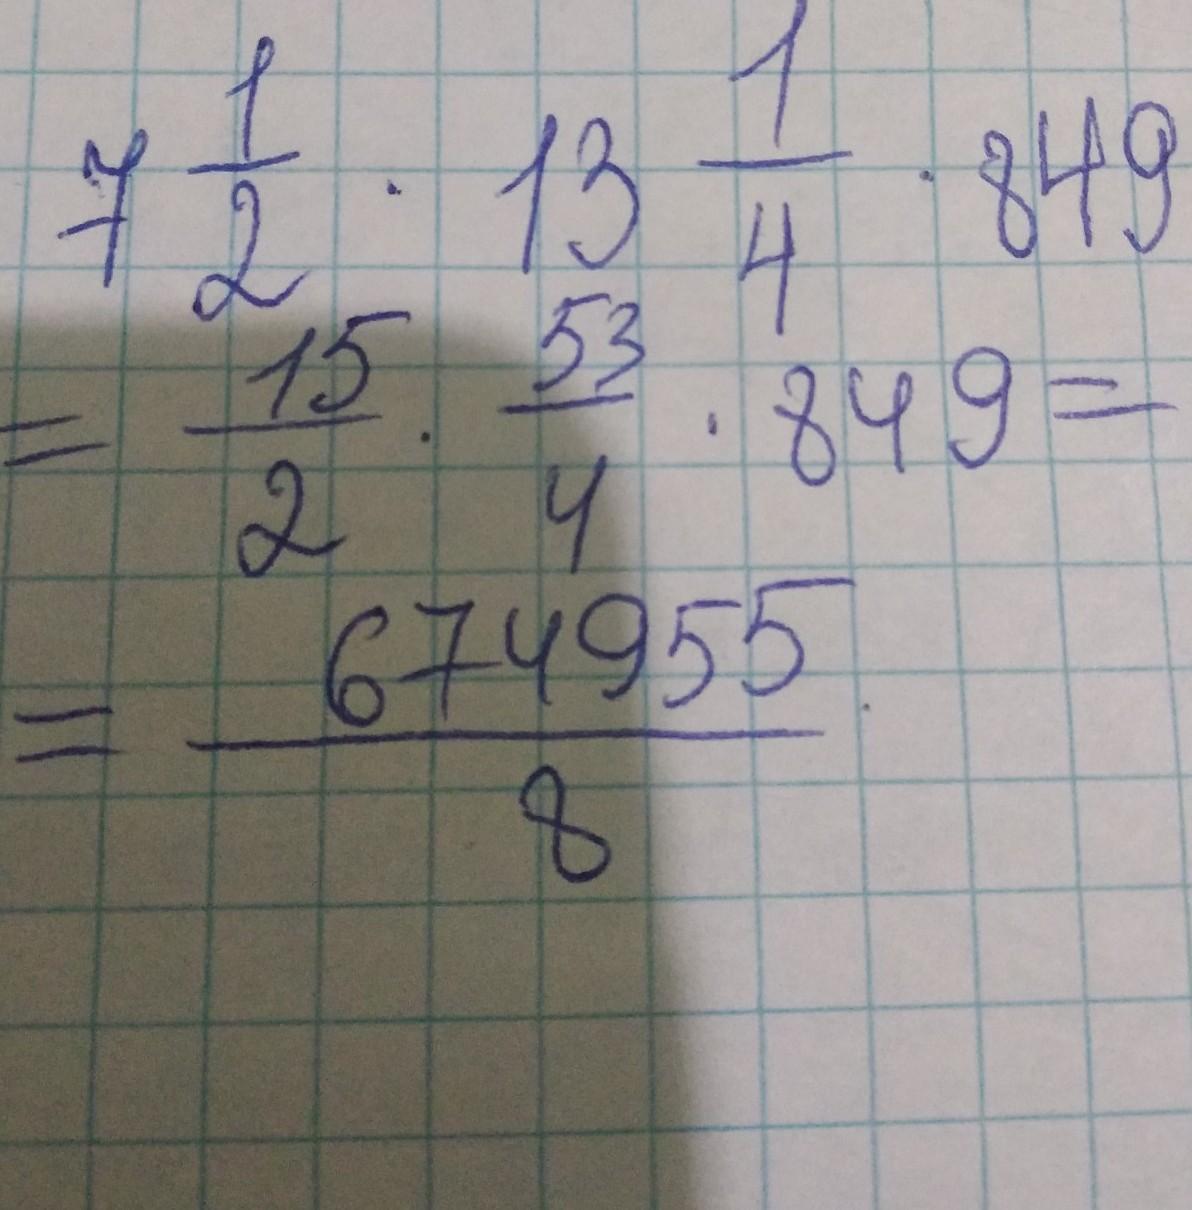 7 1/2 · 13 1/4 · 849
= 15/2 · 53/4 · 849 =
= 674955/8